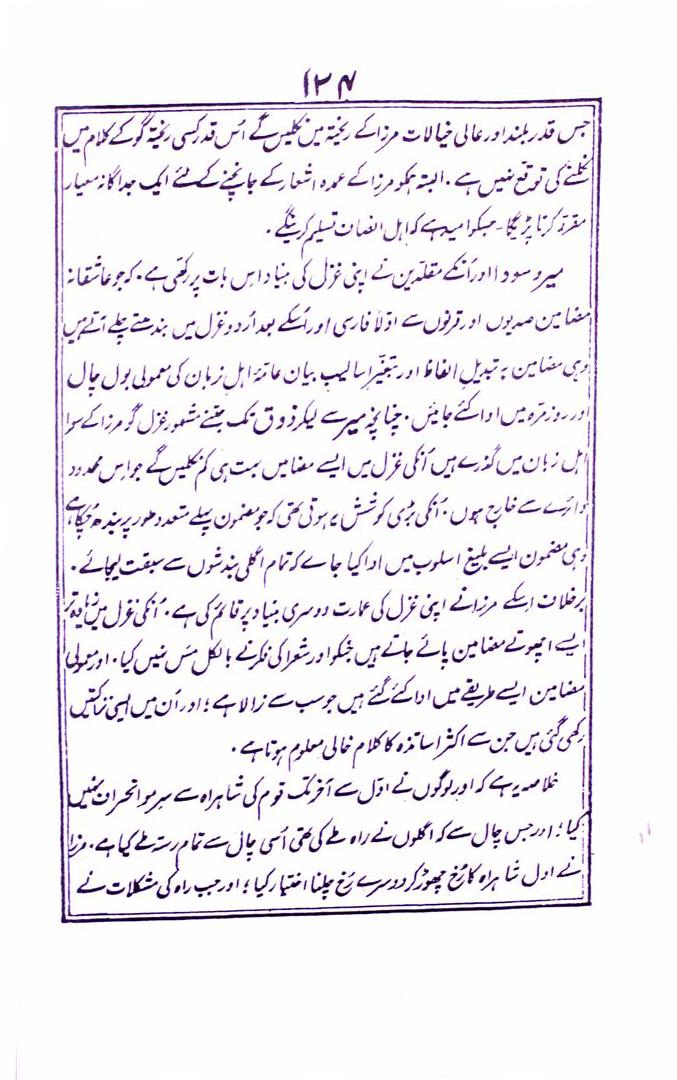 ۱۲۴
جس قدر بلند اور عالی خیالات مرزا کے ریختہ مین نکلیں گے اُس قدر کسی ریختہ گو کے کلام میں
نکلنے کی توقع نہیں ہے۔ البتہ ہمکو مرزا کے عمدہ اشعار کے جانچنے کے لئے ایک جداگانہ معیار
مقرر کرنا پڑیگا۔ جسکو امید ہے کہ اہل انصاف تسلیم کرینگے۔
میر و سودا اور اُنکے مقلدین نے اپنی غزل کی بنیاد اِس بات پر رکھی ہے۔ کہ جو عاشقانہ
مضامین صدیوں اور قرنوں سے اوّلاً فارسی اور اُسکے بعد اُردو غزل میں بندھتے چلے آتے ہیں
وہی مضامین بہ تبدیلِ الفاظ اور بتغیّرِ اسالیبِ بیان عامۂ اہلِ زبان کی معمولی بول چال
اور روزمرّہ میں ادا کئے جائیں۔ چنانچہ میر سے لیکر ذوق تک جتنے مشہور غزل گو مرزا کے سوا
اہل زبان میں گذرے ہیں اُنکی غزل میں ایسے مضامین بہت ہی کم نکلیں گے جو اِس محدود
دائرے سے خارج ہوں۔ اُنکی بڑی کوشش یہ ہوتی تھی کہ جو مضمون پہلے متعدد طور پر بندھ چکا ہے
وہی مضمون ایسے بلیغ اسلوب میں ادا کیا جاے کہ تمام اگلی بندشوں سے سبقت لیجائے۔
برخلاف اسکے مرزا نے اپنی غزل کی عمارت دوسری بنیاد پر قائم کی ہے۔ اُنکی غزل میں زیادہ تر
ایسے اچھوتے مضامین پائے جاتے ہیں جنکو اور شعرا کی فکر نے بالکل مَس نہیں کیا۔ اور معمولی
مضامین ایسے طریقے میں ادا کئے گئے ہیں جو سب سے نرالا ہے؛ اور اُن میں ایسی نزاکتیں
رکھی گئی ہیں جن سے اکثر اساتذہ کا کلام خالی معلوم ہوتا ہے۔
خلاصہ یہ ہے کہ اور لوگوں نے اوّل سے آخر تک قوم کی شاہراہ سے سرِمو انحراف نہیں
کیا؛ اور جس چال سے کہ اگلوں نے راہ طے کی تھی اُسی چال سے تمام رستہ طے کیا ہے۔ مرزا
نے اول شاہراہ کا رُخ چھوڑ کر دوسرے رُخ چلنا اختیار کیا؛ اور جب راہ کی مشکلات نے